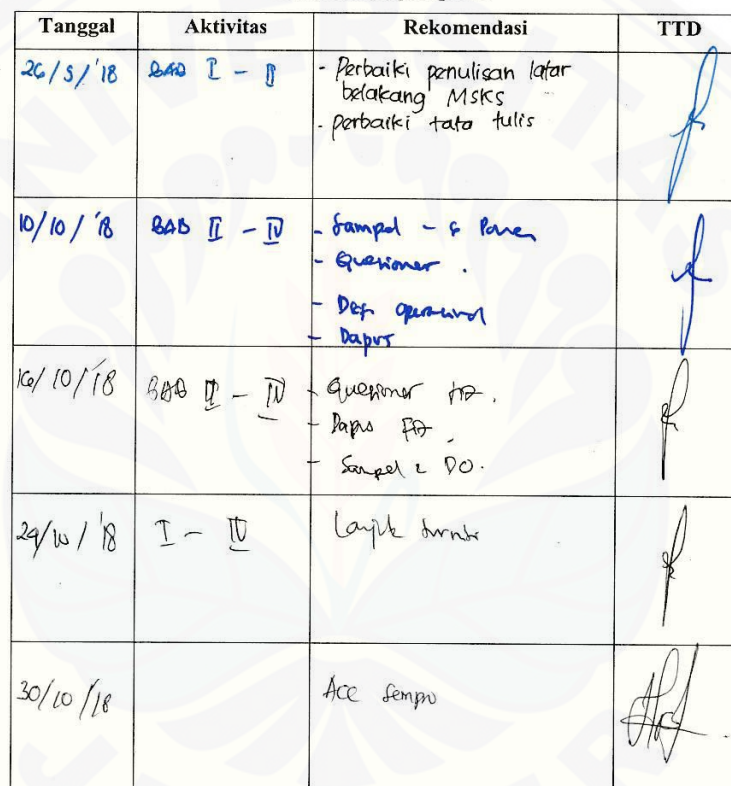 Tanggal Aktivitas Rekomendasi TTD
26/5/'18 BAB I - II - Perbaiki penulisan latar
belakang MSKS
- perbaiki tata tulis
10/10/'18 BAB II - IV - Sampel -
- Quesioner.
- Def. operasional
- Dapus
16/10/'18 BAB II - IV - Quesioner
- Dapus
- Sampel & DO.
29/10/'18 I - IV Lanjut
30/10/18 Acc Sempro